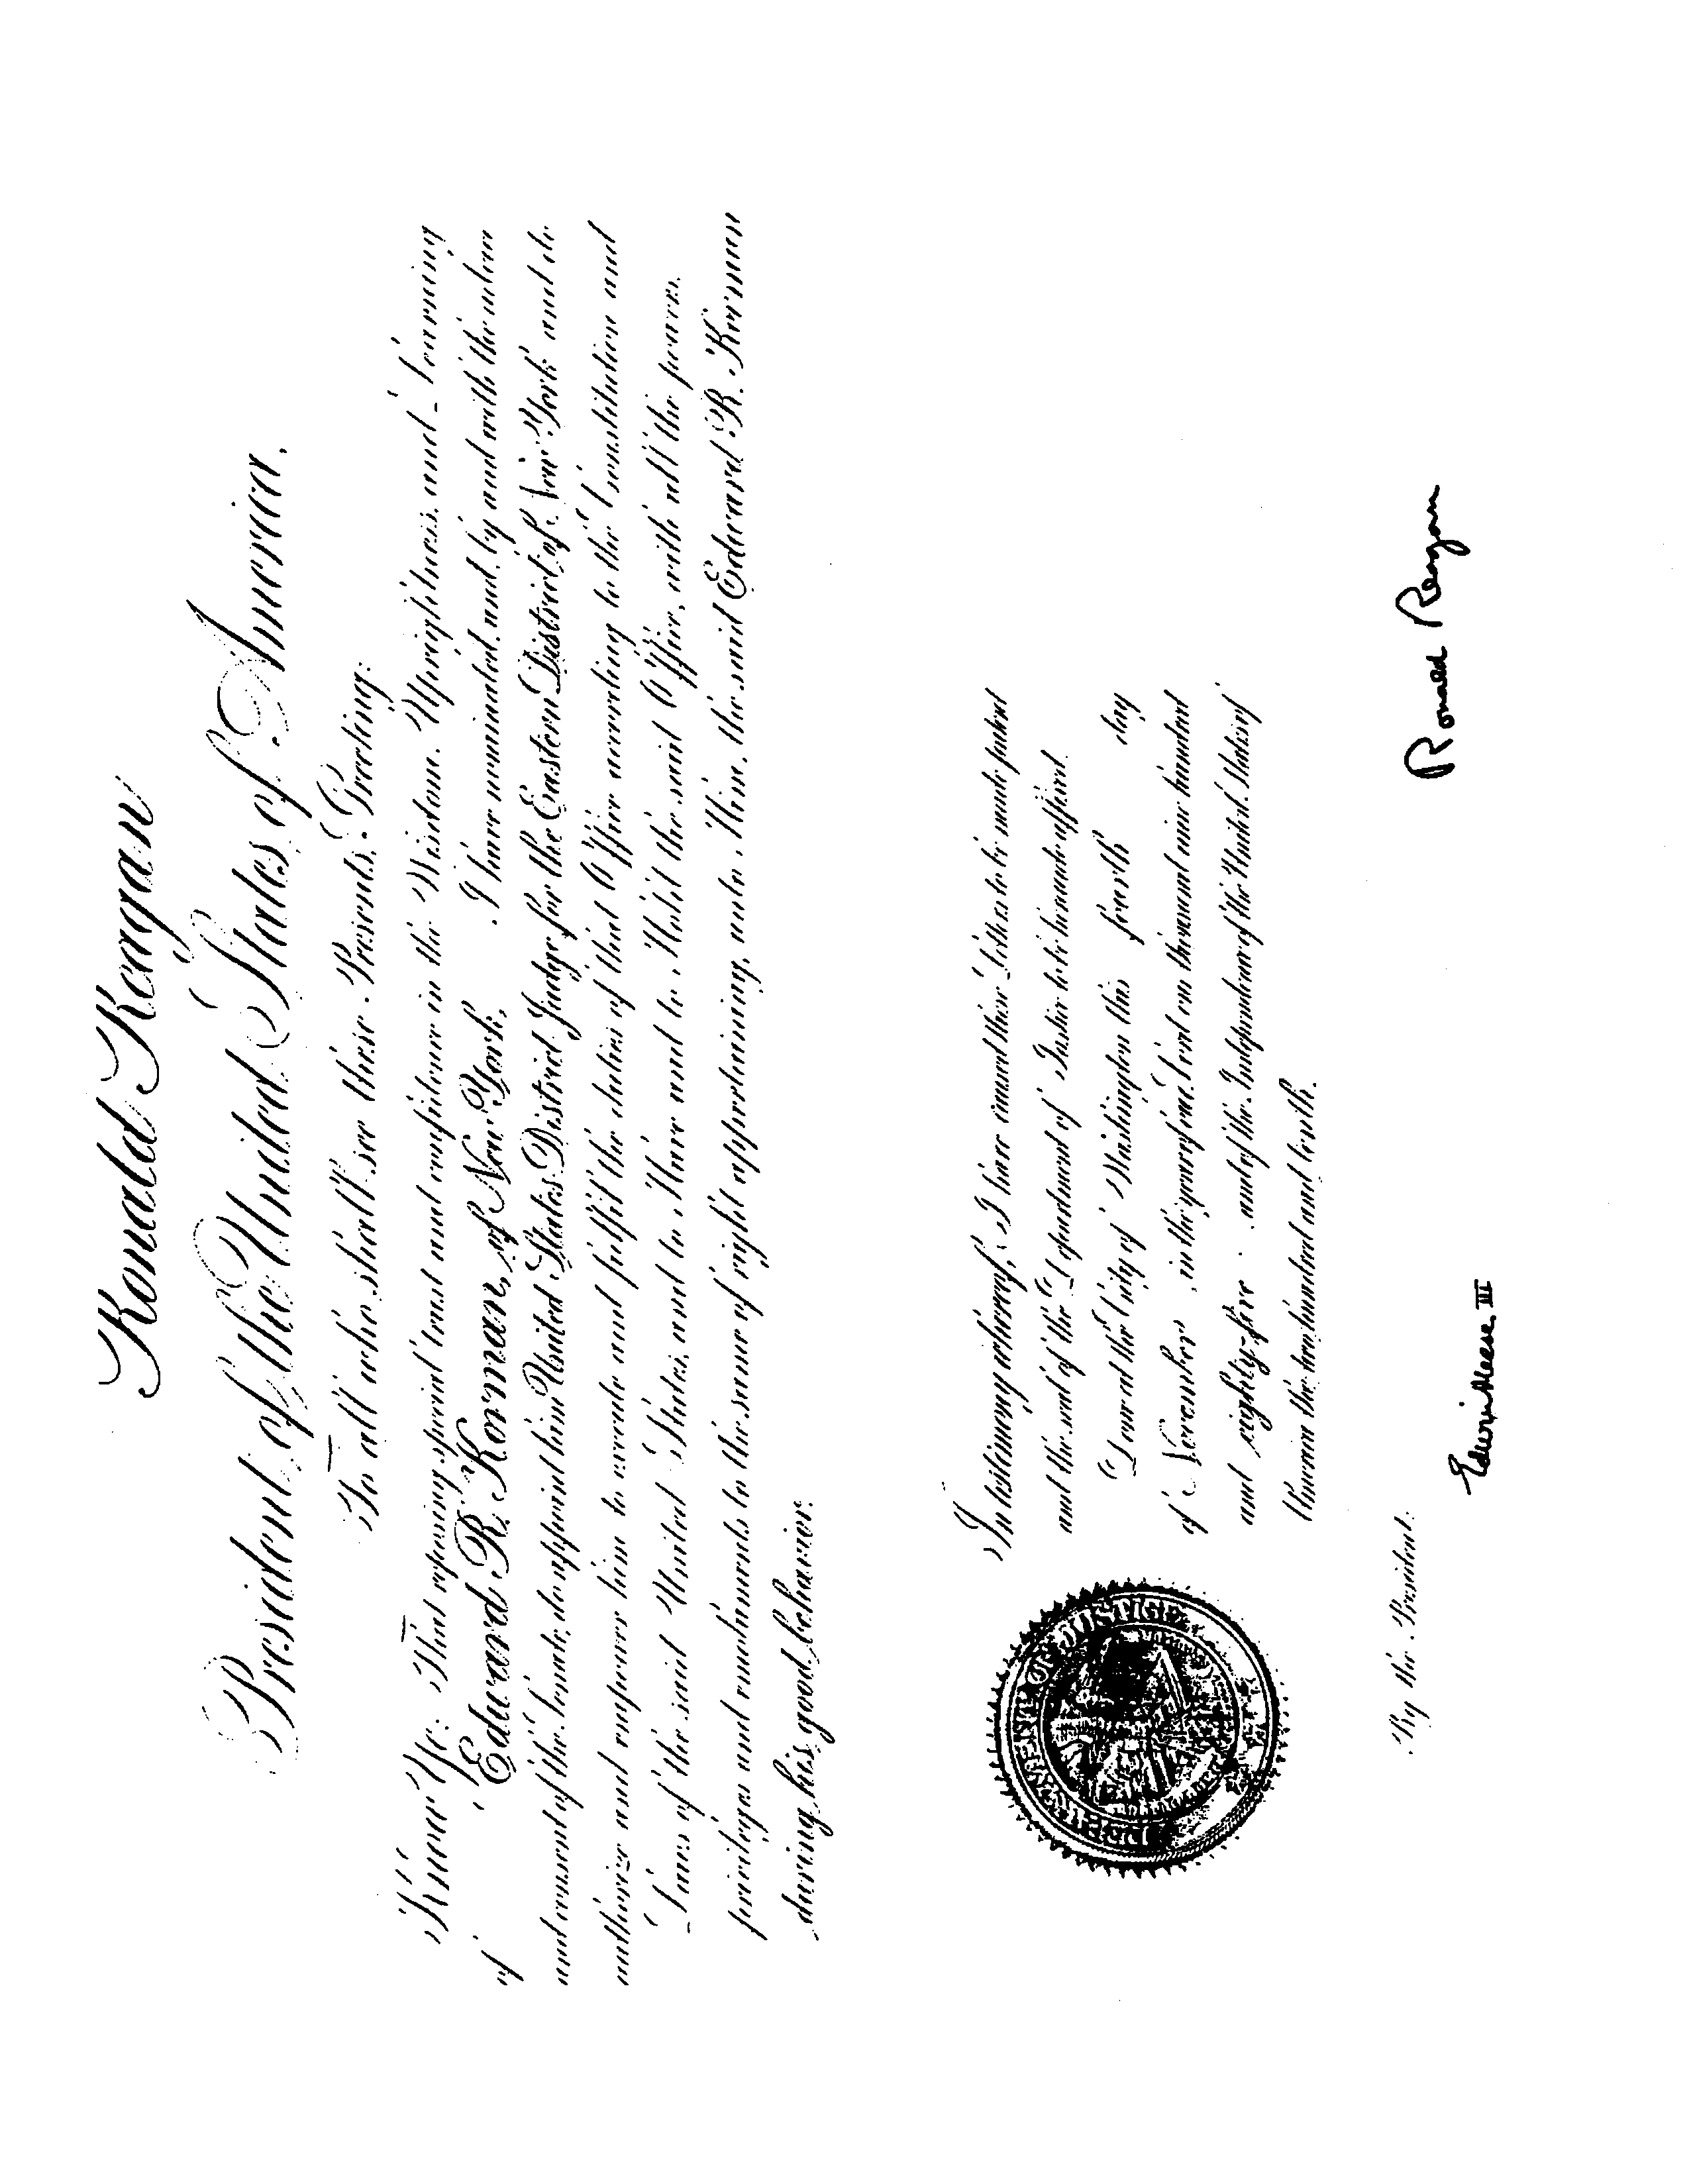 Ronald Reagan
President of the United States of America.
To all who shall see these Presents, Greeting:
Know Ye: That reposing special trust and confidence in the Wisdom, Uprightness, and Learning
of Edward R. Korman, of New York, I have nominated, and, by and with the advice
and consent of the Senate, do appoint him United States District Judge for the Eastern District of New York and do
authorize and empower him to execute and fulfil the duties of that Office according to the Constitution and
Laws of the said United States, and to Have and to Hold the said Office, with all the powers,
privileges and emoluments to the same of right appertaining, unto Him, the said Edward R. Korman
during his good behavior.
In testimony whereof, I have caused these Letters to be made patent
and the seal of the Department of Justice to be hereunto affixed.
Done at the City of Washington this fourth day
of November in the year of our Lord one thousand nine hundred
and eighty-five and of the Independence of the United States of
America the two hundred and tenth.
DEPARTMENT OF JUSTICE
Ronald Reagan
By the President:
Edwin Meese III